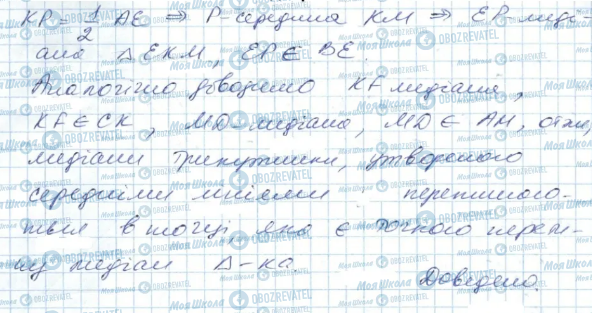 KP = 1/2 AE ⇒ P - середина KM ⇒ EP меді-
ана Δ EKM, EP ∈ BE.
Аналогічно доводимо KF медіана,
KF ∈ CK, MD - медіана, MD ∈ AM, отже,
медіани трикутника, утвореного
середніми лініями перетинаю-
ться в точці, яка є точкою перети-
ну медіан Δ-ка.
Доведено.